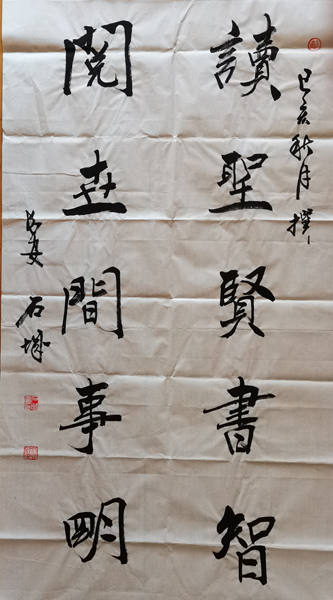 己亥秋月撰
讀聖賢書智
閱世間事明
長安 石城